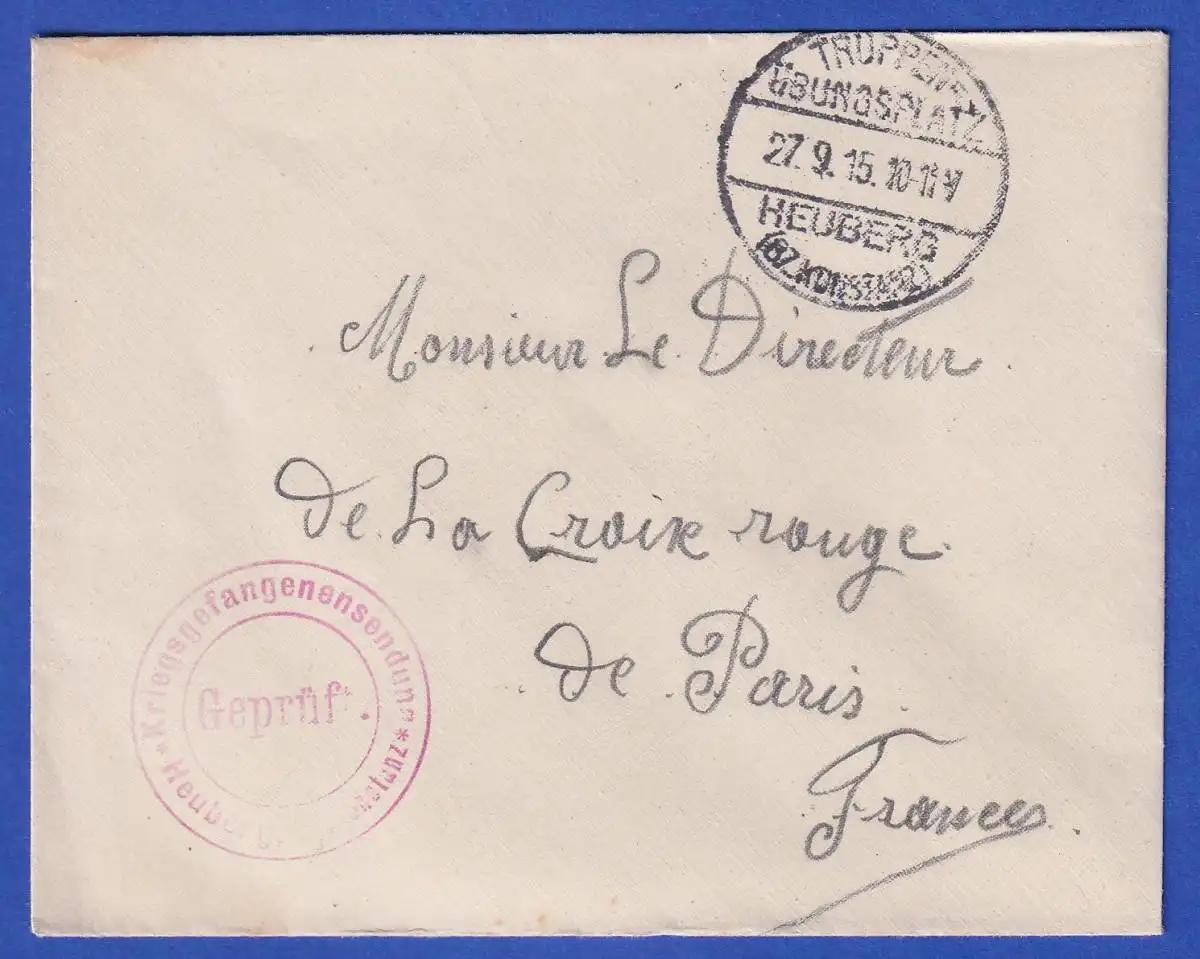 TRUPPEN-
ÜBUNGSPLATZ
27.9.15.10-11V
HEUBERG
(BZ. KONSTANZ)
Monsieur Le Directeur
de La Croix rouge
de Paris
France
*Kriegsgefangenensendung*
Geprüft.
Heuberg